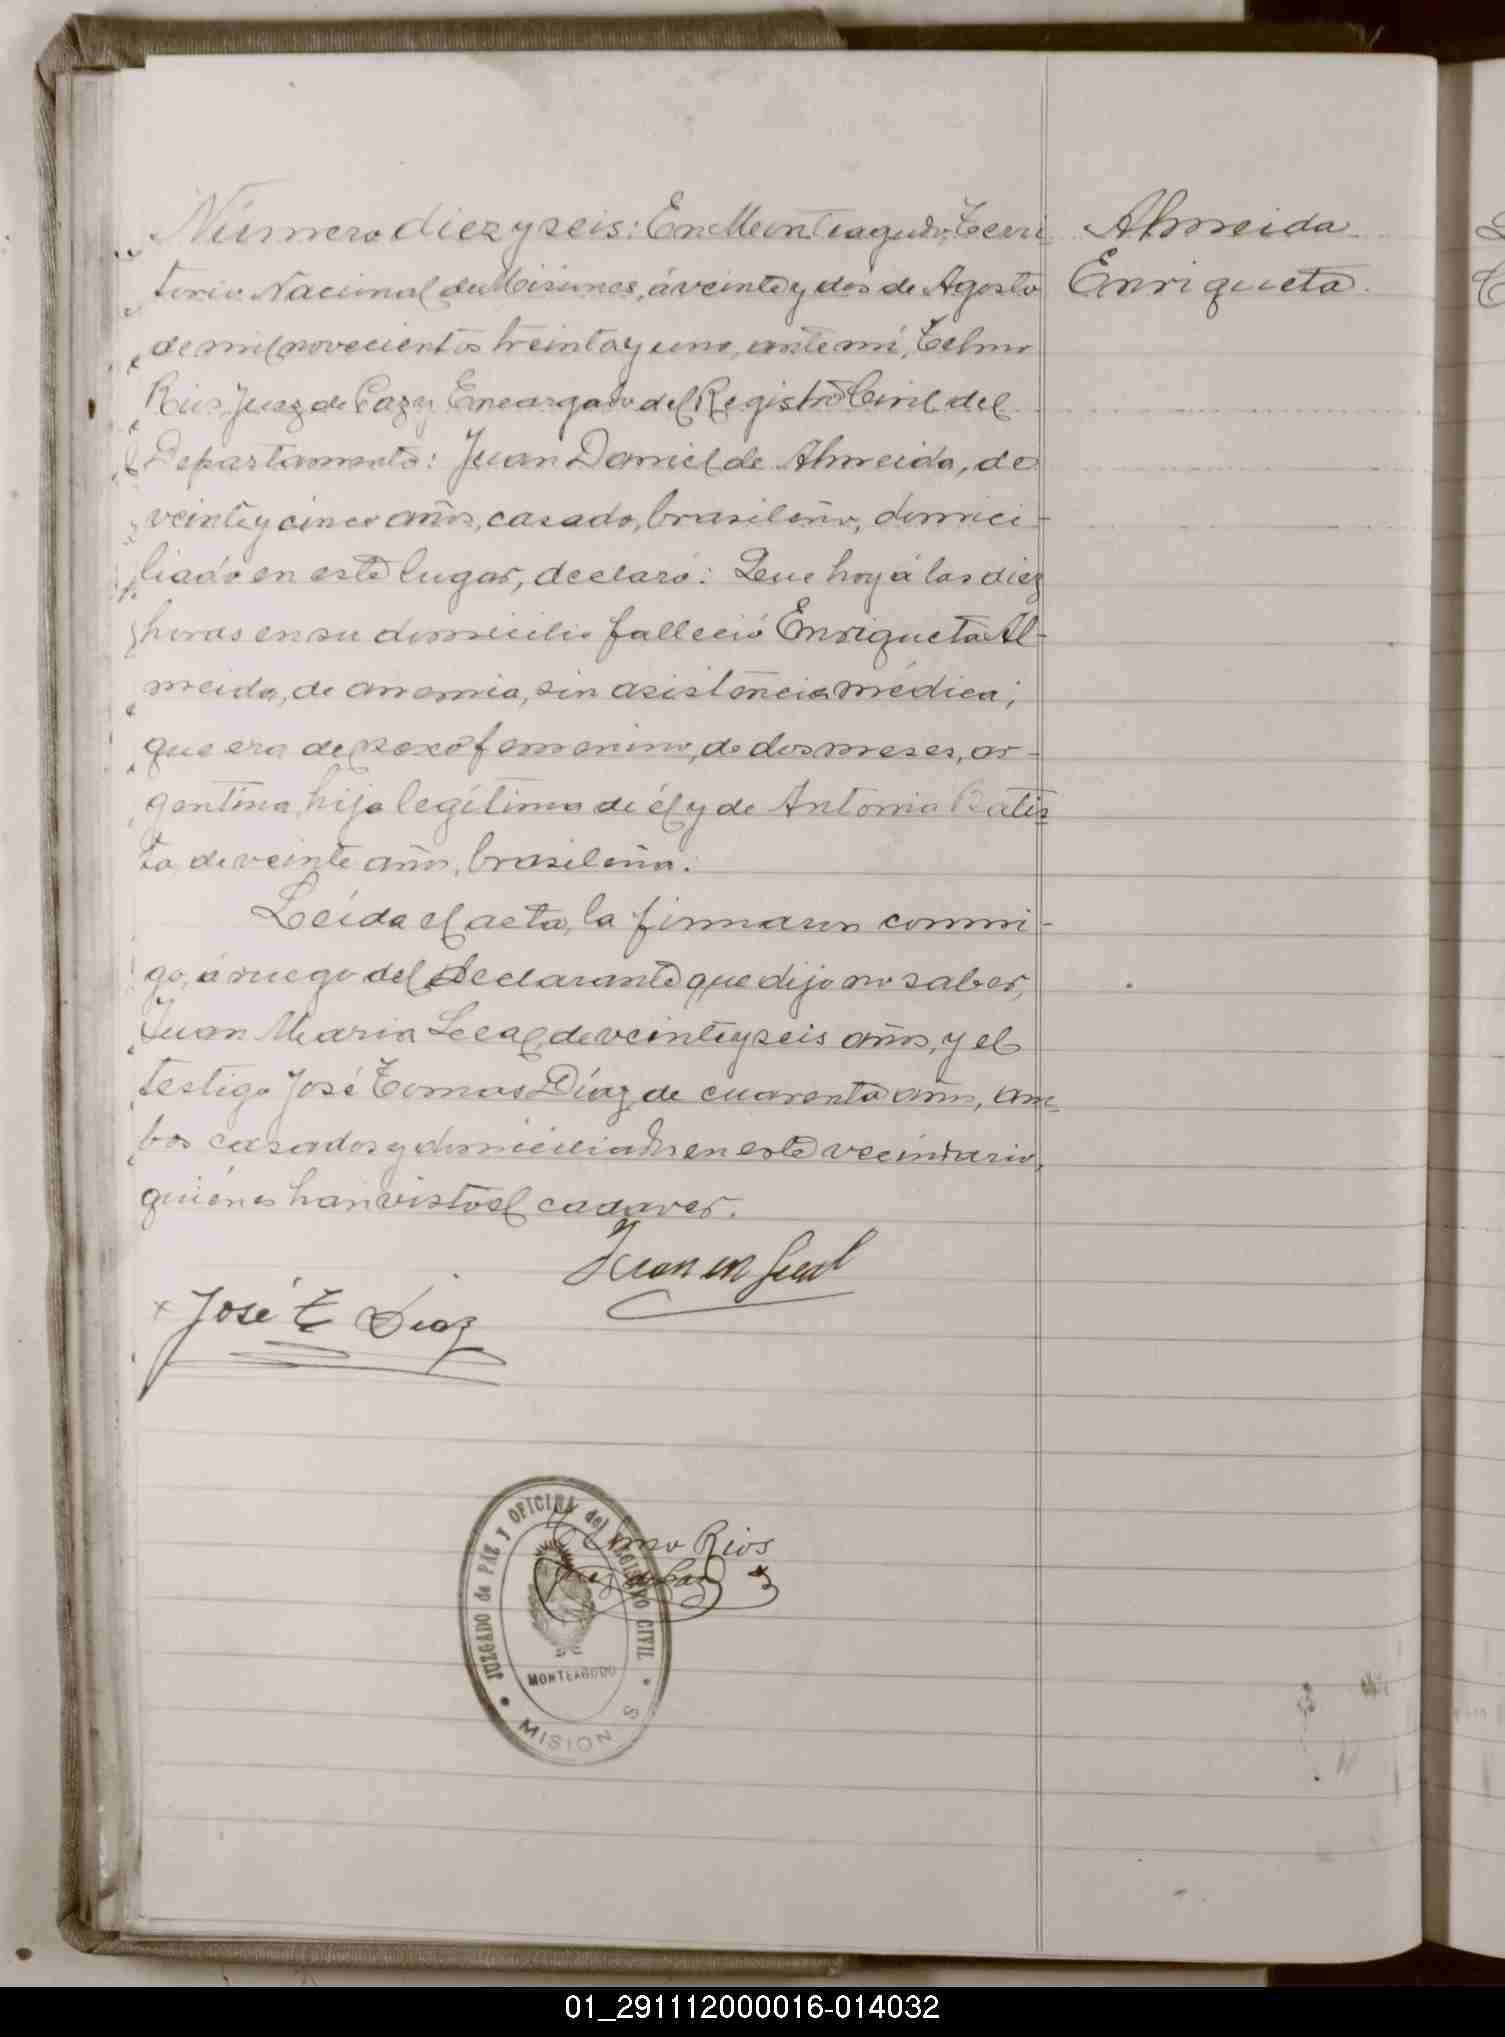 Número diez y seis: En Monteagudo, Terri
torio Nacional de Misiones, á veinte y dos de Agosto
de mil novecientos treinta y uno, ante mí, Telmo
Rios, Juez de Paz y Encargado del Registro Civil del
Departamento: Juan Daniel de Almeida, de
veinte y cinco años, casado, brasileño, domici-
liado en este lugar, declaró: Que hoy á las diez
horas en su domicilio falleció Enriqueta Al-
meida, de anemia, sin asistencia médica;
que era del sexo femenino, de dos meses, ar-
gentina, hija legítima de él y de Antonia Batis
ta, de veinte años, brasileña.
Leída el acta, la firmaron conmi-
go, á ruego del declarante que dijo no saber,
Juan Maria Leal, de veinte y seis años, y el
testigo José Tomas Díaz, de cuarenta años, am-
bos casados y domiciliados en este vecindario,
quiénes han visto el cadaver.
Juan M Leal
José T Diaz
Telmo Rios
Juez de Paz
JUZGADO de PAZ Y OFICINA del REGISTRO CIVIL
MONTEAGUDO
MISION S
Almeida
Enriqueta.
01_291112000016-014032